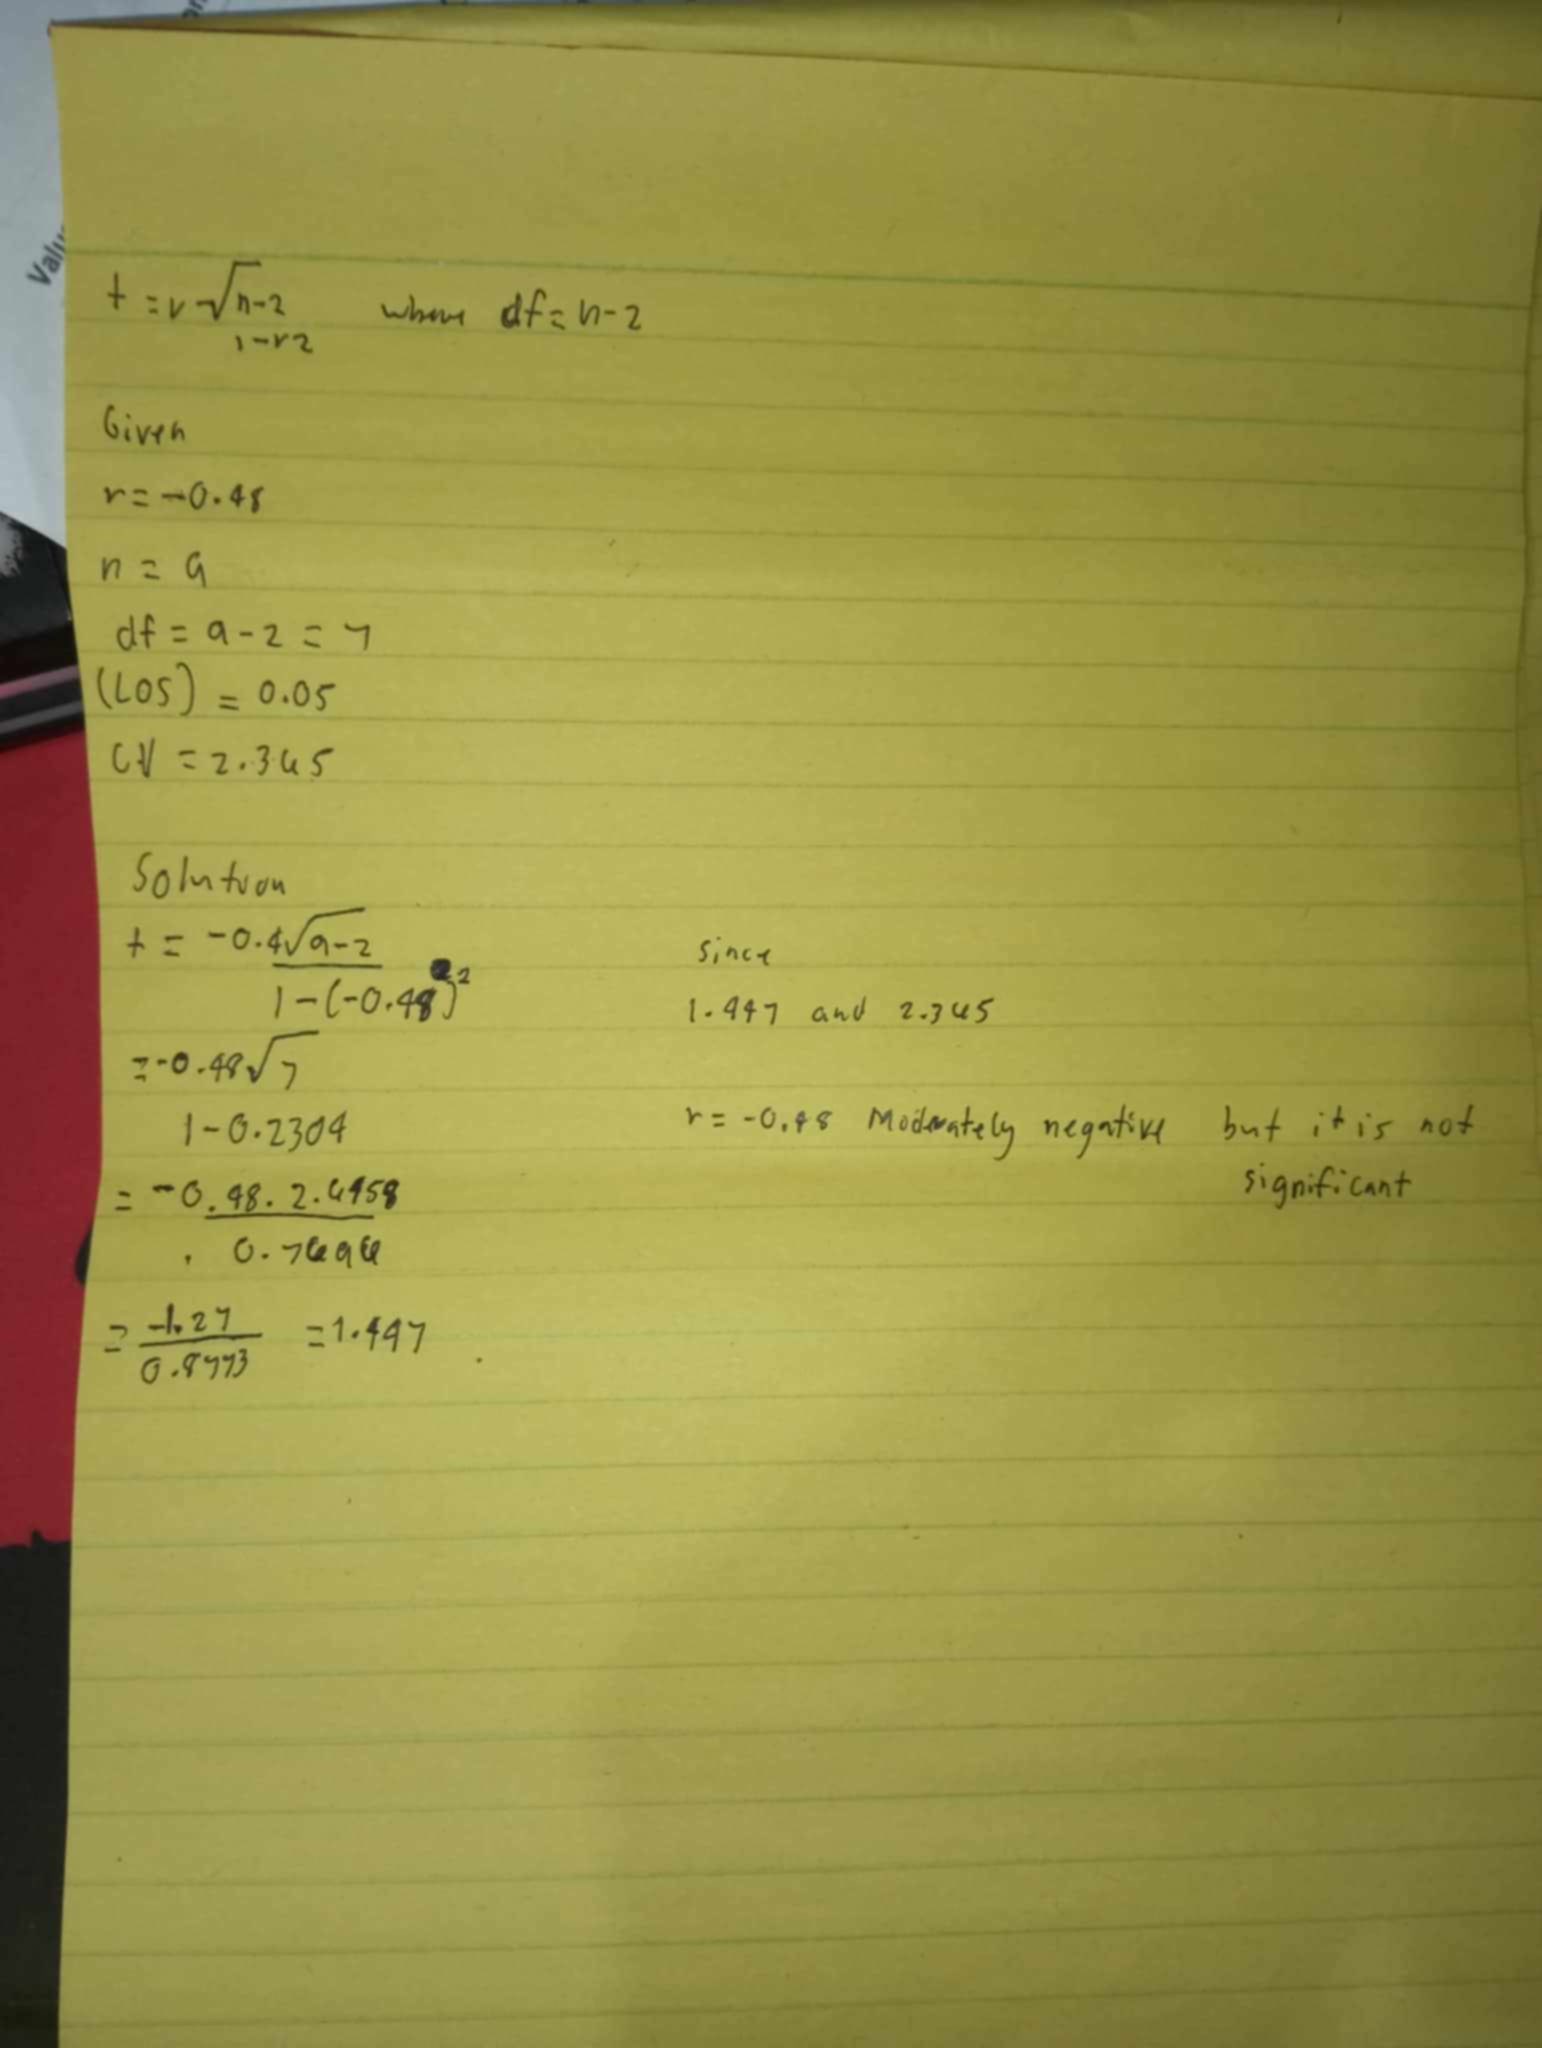 Valu
t = r √n-2 where df = n-2
1-r2
Given
r = -0.48
n = 9
df = 9-2 = 7
(LOS) = 0.05
CV = 2.365
Solution
t = -0.4√9-2
1-(-0.48)²
= -0.48√7
1-0.2304
= -0.48.2.6458
0.7696
= -1.27 = 1.447
0.8773
since
1.447 and 2.365
r = -0.48 Moderately negative but it is not
significant